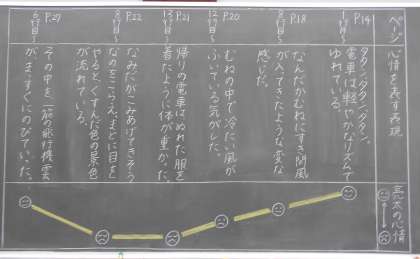 ページ
心情を表す表現
P.14
1行目〜
タタン、タタン、タタン。
電車は軽やかなリズムで
ゆれている。
P.18
なんだかむねにすき間風
が入ってきたような変な
感じだ。
P.20
むねの中で冷たい風が
ふいている気がした。
P.21
帰りの電車はぬれた服を
着たように体が重かった。
P.22
なみだがこみあげてきそう
なのをこらえ、まどに目を
やると、くすんだ色の景色
が流れている。
P.27
その中を一筋の飛行機雲
がまっすぐにのびていた。
の心情